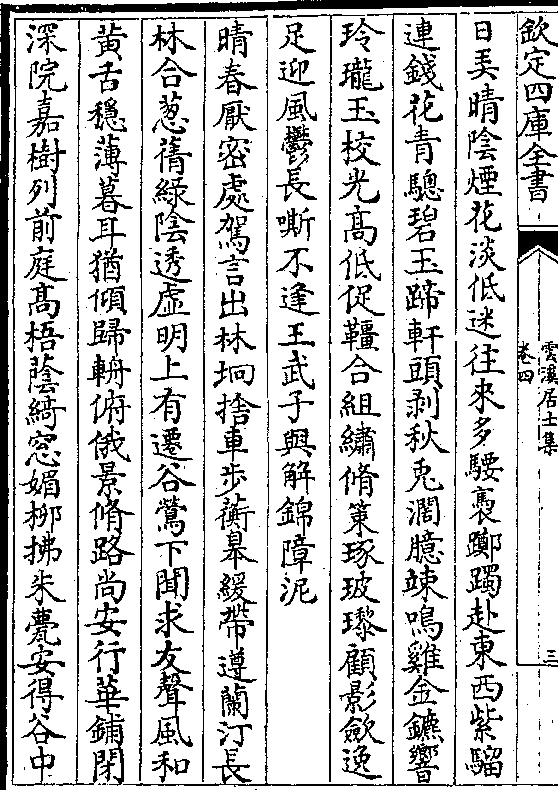 欽定四庫全書
雲溪居士集
卷四
三
日異晴陰煙花淡低迷往來多騕褭躑躅赴東西紫騮
連錢花青驄碧玉蹄軒頭剥秋兎濶臆竦鳴雞金鑣響
玲瓏玉校光髙低促韁合組繡脩策琢玻瓈顧影歛逸
足迎風鬱長嘶不逢王武子與解錦障泥
晴春厭密處駕言出林坰捨車步蘅臯緩帶遵蘭汀長
林合葱蒨緑陰透虚明上有遷谷鶯下聞求友聲風和
黄舌穩薄暮耳猶傾歸輈俯俄景脩路尚安行華鋪閉
深院嘉樹列前庭髙梧蔭綺窓媚栁拂朱甍安得谷中